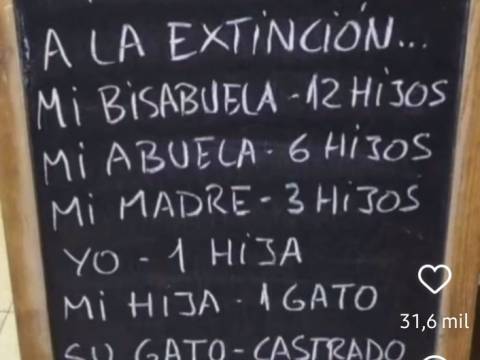 A LA EXTINCIÓN...
Mi BISABUELA - 12 HiJOS
Mi ABUELA - 6 HiJOS
Mi MADRE - 3 HiJOS
YO - 1 HiJA
Mi HiJA - 1 GATO
31,6 mil
SU GATO - CASTRADO